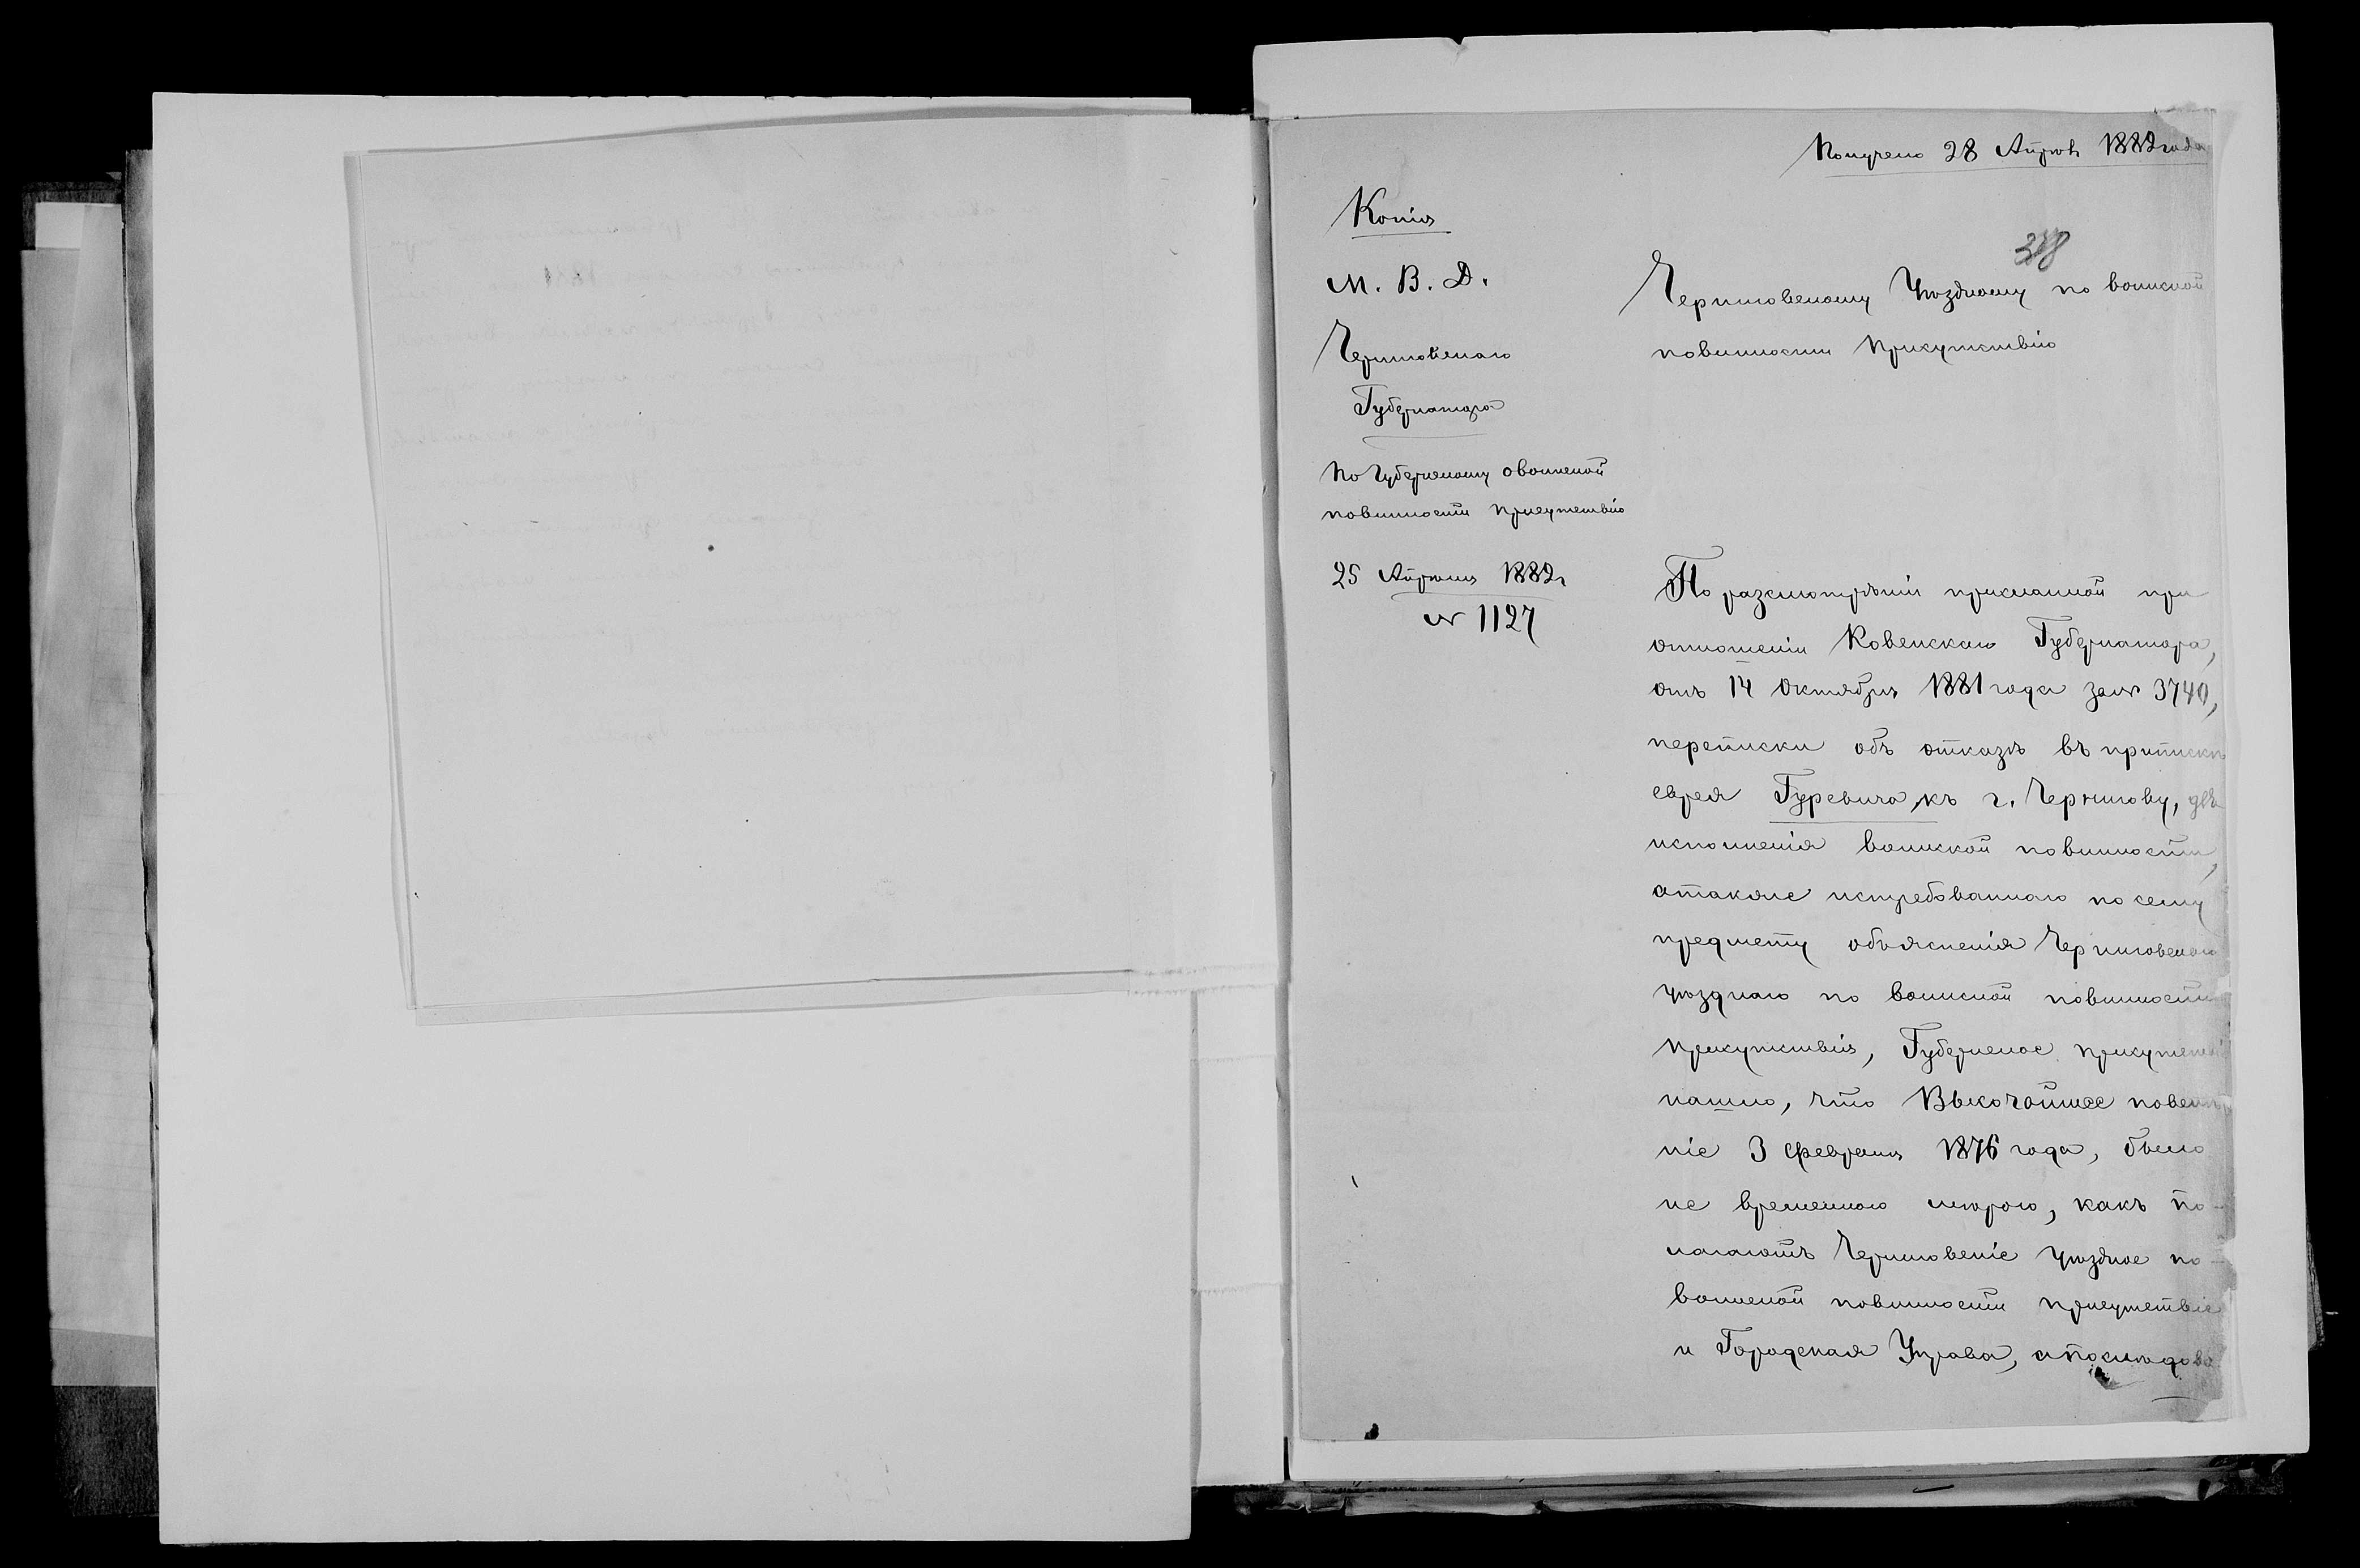 Получено 28 Апрѣл 1882 года
Копія
М. В. Д.
Черниговскаго
Губернатора
По Губернскому о воинской
повинности присутствію
25 Апрѣля 1882 г
№ 1127
Черниговскому Уѣздному по воинской
повинности Присутствію
По разсмотрѣніи присланной при
отношеніи Ковенскаго Губернатора,
отъ 14 Октября 1881 года за № 3740,
переписки объ отказѣ въ припискѣ
еврея Гуревича, къ г. Чернигову, для
исполненія воинской повинности,
а также истребованнаго по сему
предмету объясненія Черниговскаго
уѣзднаго по воинской повинности
присутствія, Губернское присутствіе
нашло, что Высочайшее повелѣ
ніе 3 февраля 1876 года, было
не временною мѣрою, какъ по-
лагаютъ Черниговскіе уѣздное по
воинской повинности присутствіе
и Городская Управа, а послѣдова